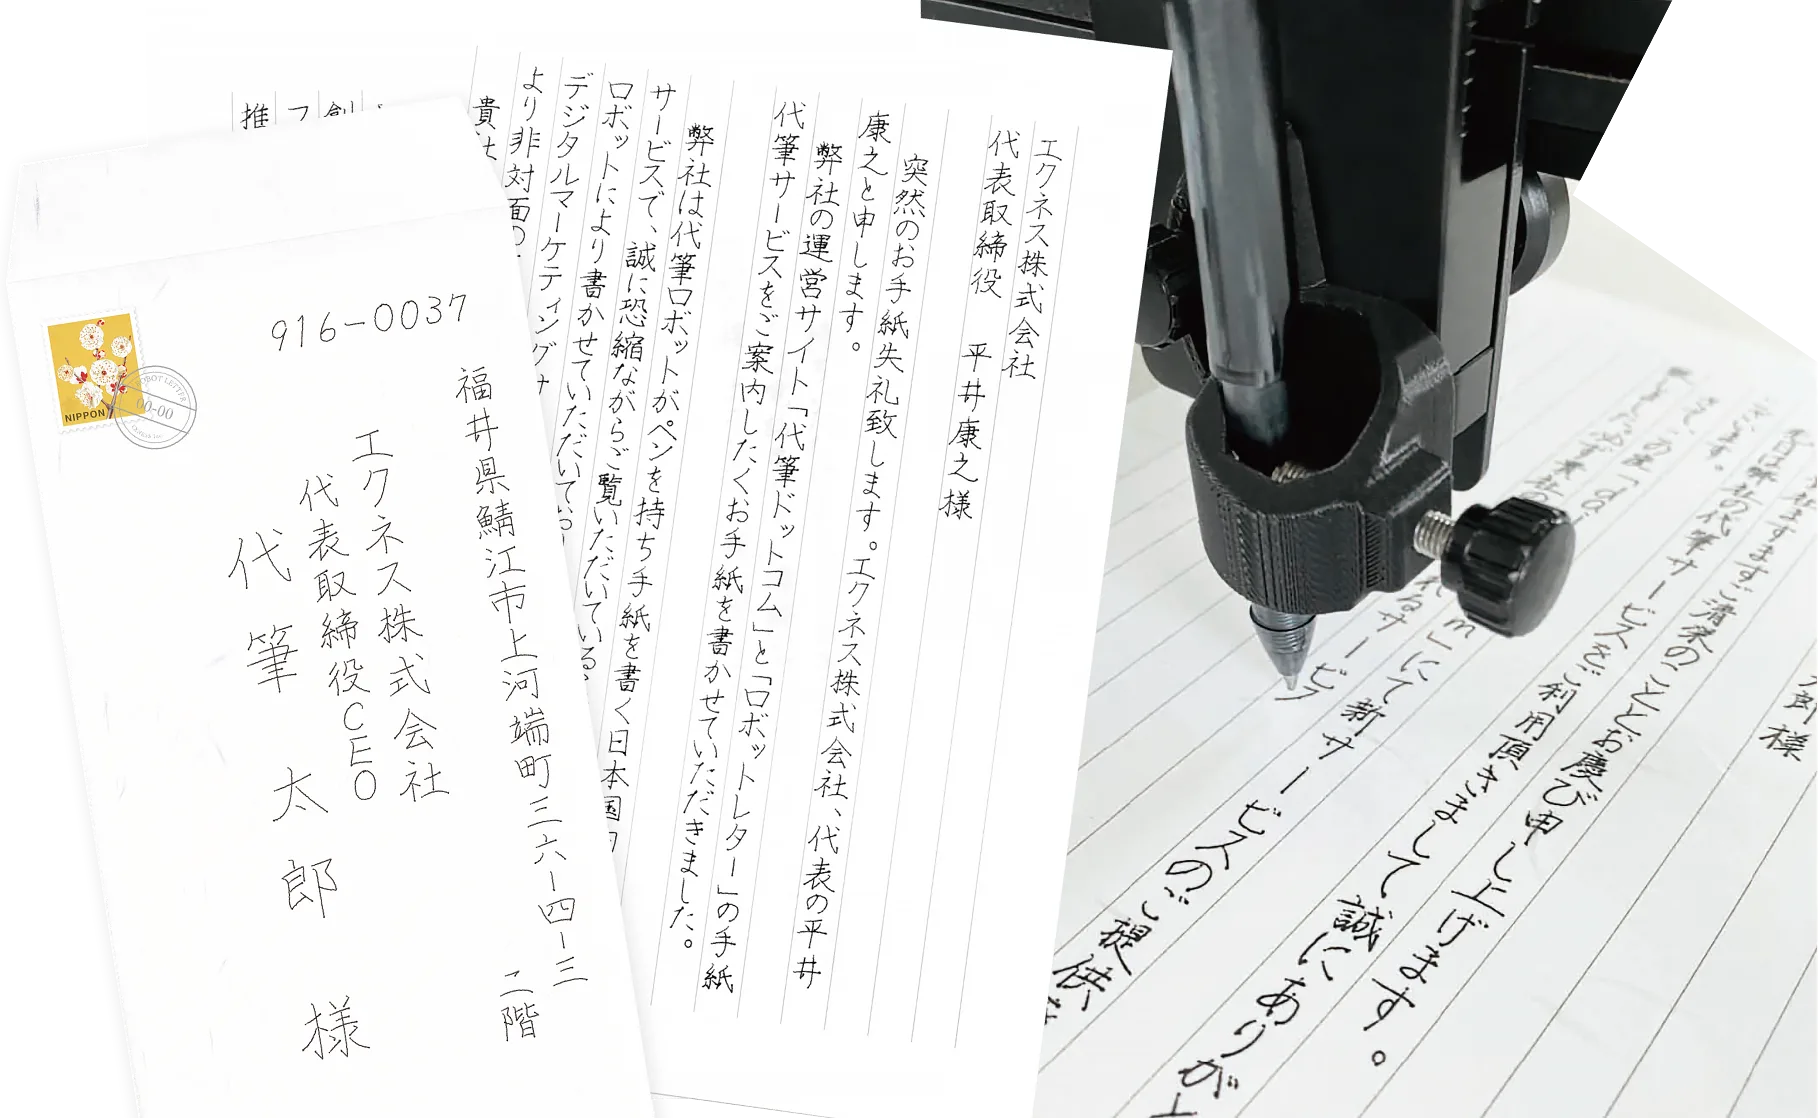 916-0037
福井県鯖江市上河端町三六ー四ー三
二階
エクネス株式会社
代表取締役CEO
代筆太郎様
NIPPON
ROBOT LETTER
00-00
エクネス株式会社
代表取締役　平井康之様
突然のお手紙失礼致します。エクネス株式会社、代表の平井
康之と申します。
弊社の運営サイト「代筆ドットコム」と「ロボットレター」の手紙
代筆サービスをご案内したくお手紙を書かせていただきました。
弊社は代筆ロボットがペンを持ち手紙を書く日本国内
サービスで、誠に恐縮ながらご覧いただいている
ロボットにより書かせていただいてお
デジタルマーケティング
より非対面の
貴社
創
フ
推
郎様
ますますご清栄のこととお慶び申し上げます。
は弊社の代筆サービスをご利用頂きまして誠にありが
ございます。
さて、
m」にて新サービスのご提供
れるサービス